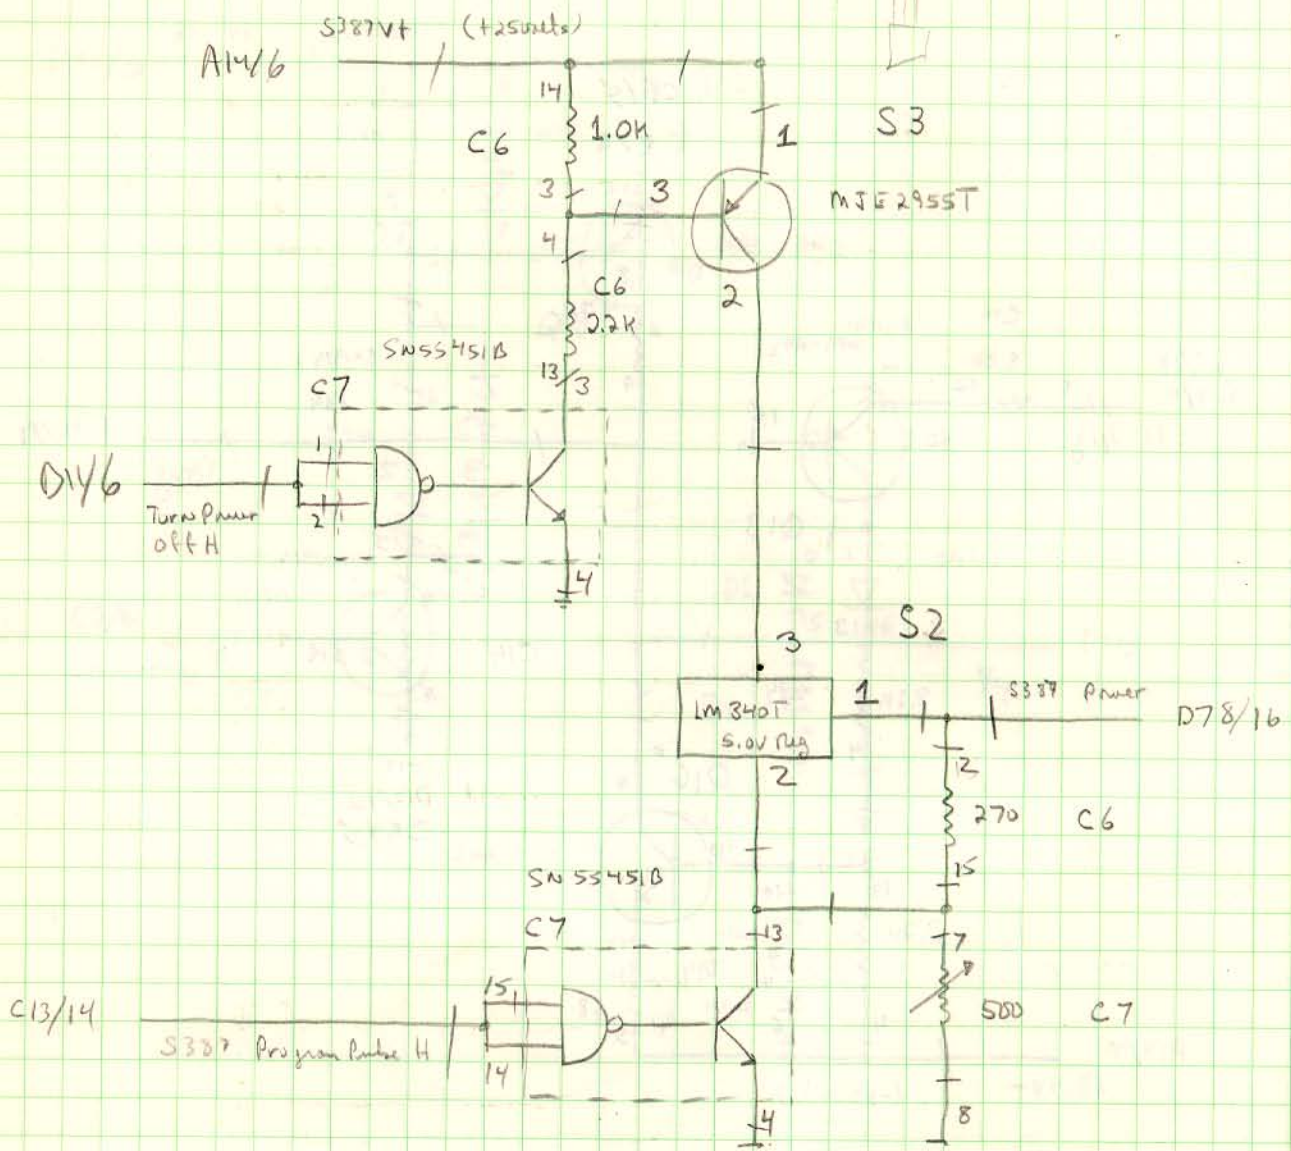 S387V+ (+25volts)
A14/6
14
1.0K
C6
1
S3
3
3
MJE2955T
4
C6
2.2K
2
SN55451B
13
3
C7
1
D14/6
2
Turn Power
Off H
4
S2
3
LM340T
5.0V Reg
1
S387 Power
D78/16
2
12
270
C6
15
SN55451B
C7
13
7
15
C13/14
500
C7
S387 Program Pulse H
14
4
8